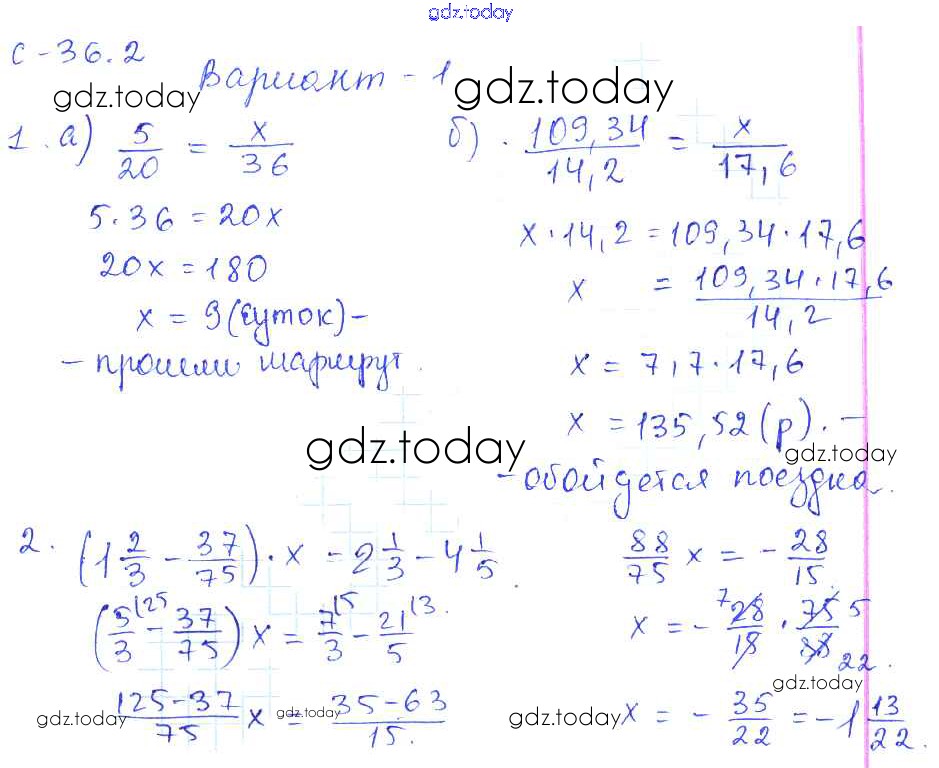 gdz.today
С-36.2
Вариант - 1
gdz.today
gdz.today
1. а) 5/20 = x/36
5·36 = 20x
20x = 180
x = 9 (суток) -
- прошли маршрут.
б) 109,34/14,2 = x/17,6
x·14,2 = 109,34·17,6
x = 109,34·17,6/14,2
x = 7,7·17,6
x = 135,52 (р). -
gdz.today
gdz.today
- обойдется поездка.
2. (1 2/3 - 37/75)·x = 2 1/3 - 4 1/5
(5/3 (25 - 37/75) x = 7/3 (5 - 21/5 (3.
125-37/75 x = 35-63/15.
gdz.today
gdz.today
88/75 x = - 28/15.
x = - 7 28/15 · 75/88 5 22.
gdz.today
gdz.today
x = - 35/22 = -1 13/22.